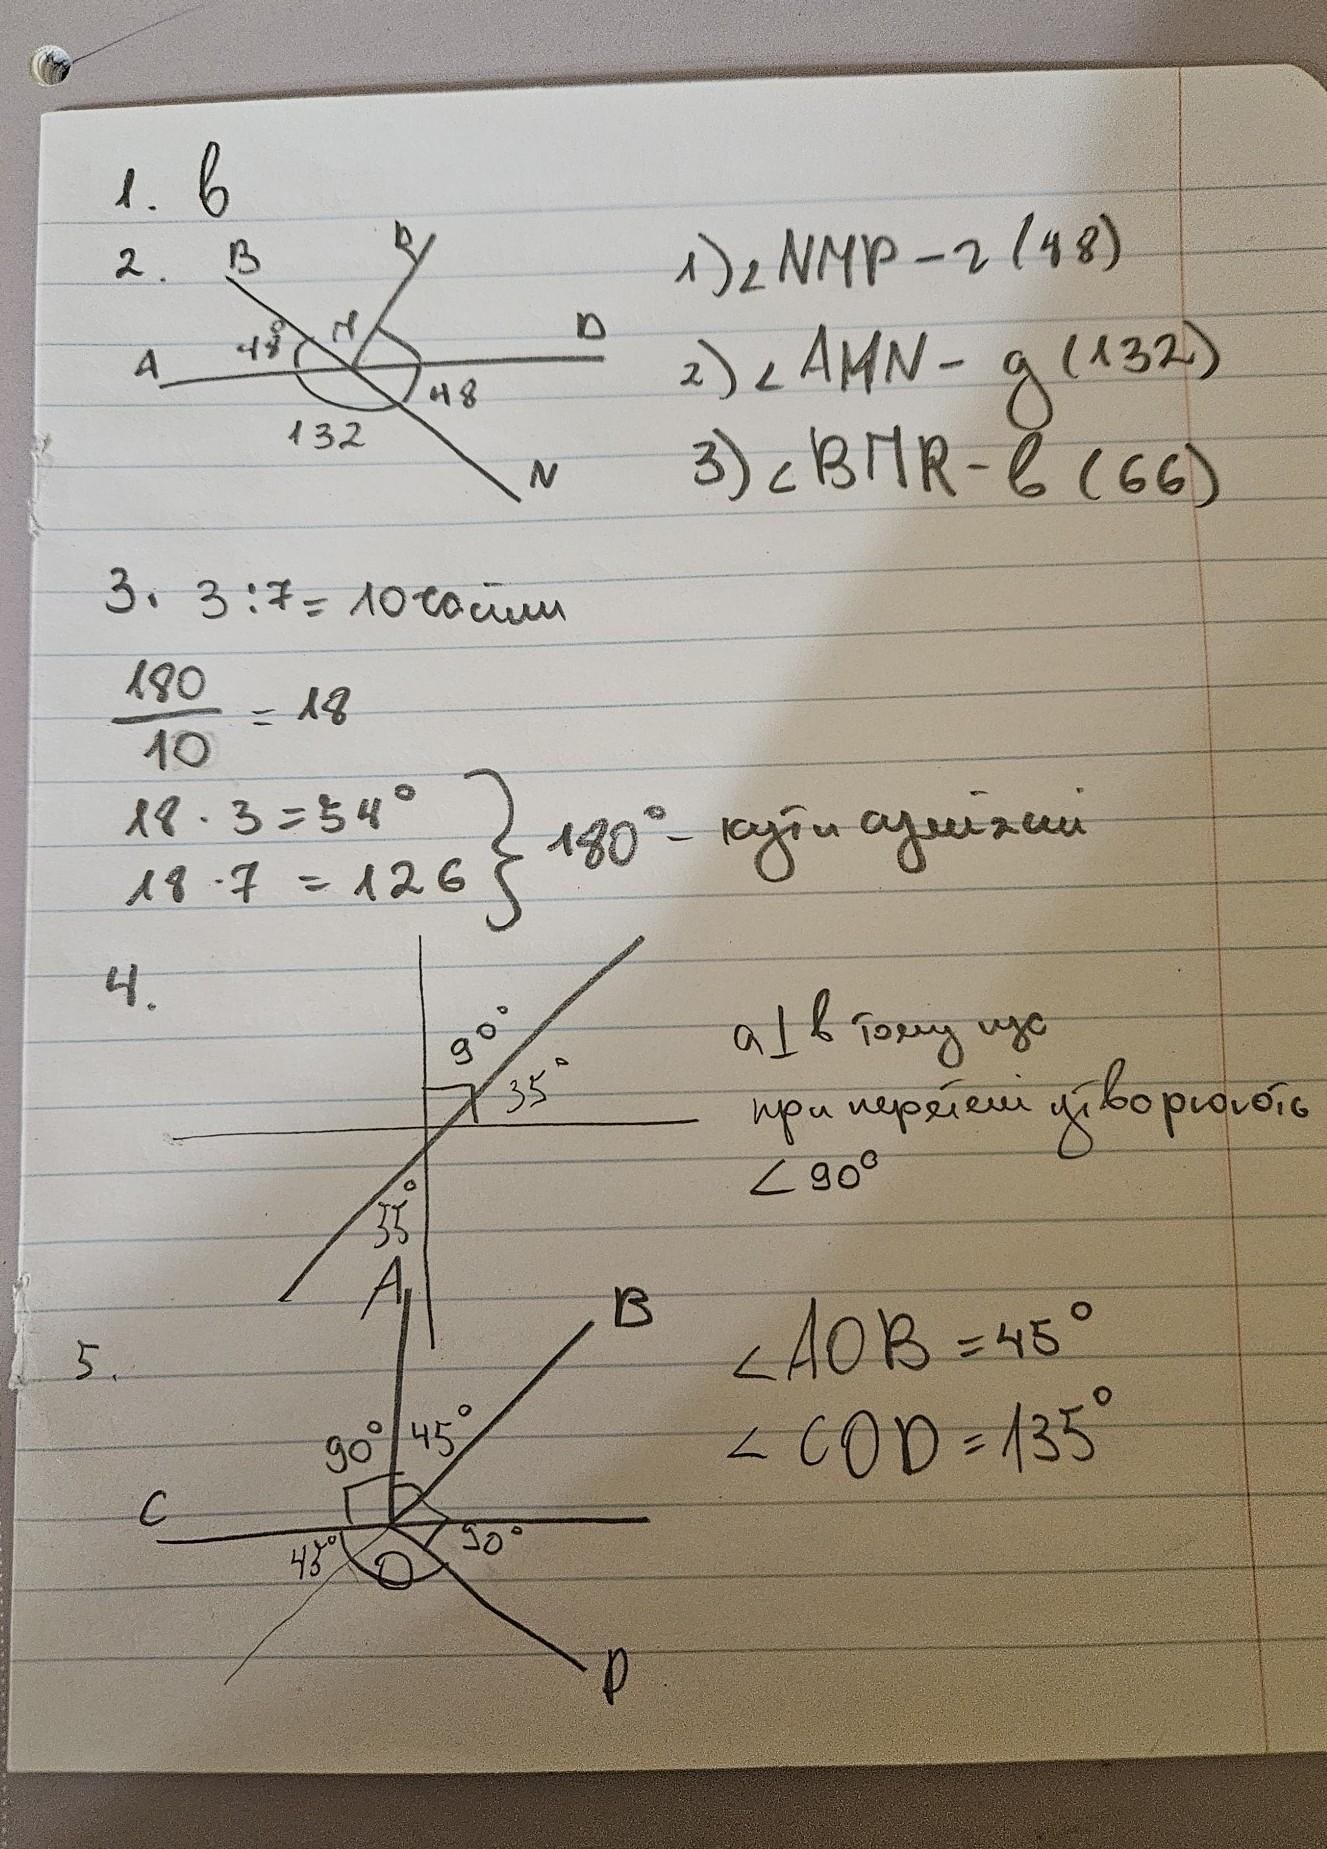 1. в
2.
B
R
M
D
A
48°
48
132
N
1) ∠NMP - г (48)
2) ∠AMN - g (132)
3) ∠BMR - в (66)
3. 3:7 = 10 частин
180
10
= 18
18 · 3 = 54°
18 · 7 = 126
} 180° - кути суміжні
4.
90°
35°
55°
a ⊥ b тому що
при перетені утворюють
∠90°
5.
A
B
90°
45°
C
45°
O
90°
D
∠AOB = 45°
∠COD = 135°